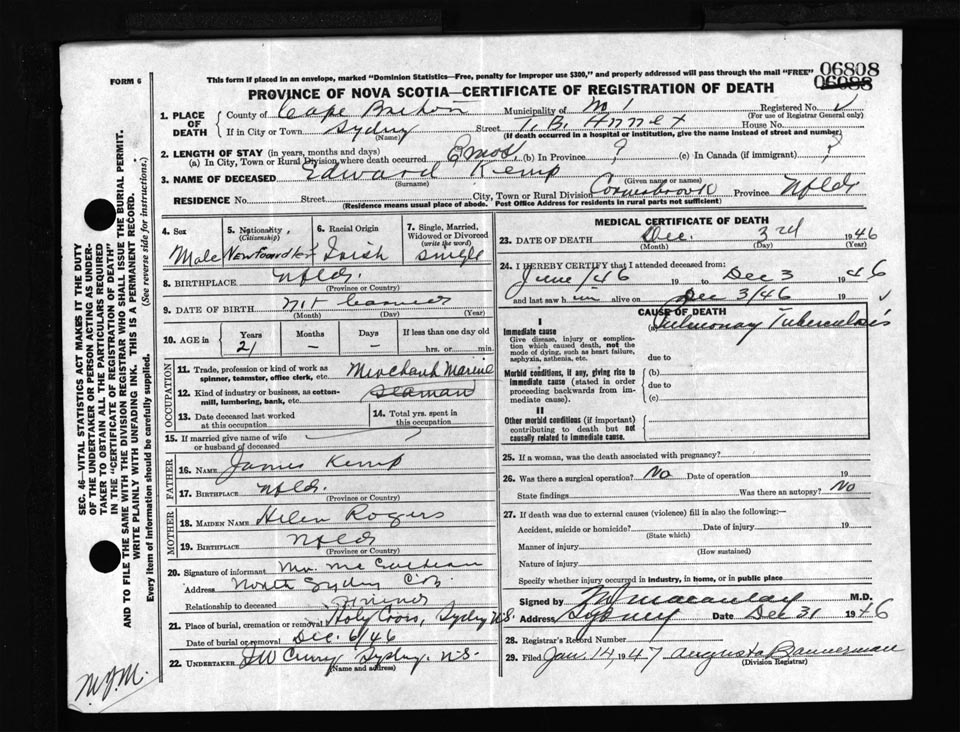 FORM 6
This form if placed in an envelope, marked "Dominion Statistics—Free, penalty for improper use $300," and properly addressed will pass through the mail "FREE"
06808
06088
PROVINCE OF NOVA SCOTIA—CERTIFICATE OF REGISTRATION OF DEATH
1. PLACE OF DEATH
County of Cape Breton Municipality of No 1 Registered No.
(For use of Registrar General only)
If in City or Town Sydney Street T. B. Annex House No.
(Name) (If death occurred in a hospital or institution, give the name instead of street and number)
2. LENGTH OF STAY (in years, months and days)
(a) In City, Town or Rural Division where death occurred 6 mos. (b) In Province ? (c) In Canada (if immigrant) ?
3. NAME OF DECEASED Edward Kemp
(Surname) (Given name or names)
RESIDENCE No. Street City, Town or Rural Division Cornerbrook Province Nfld.
(Residence means usual place of abode. Post Office Address for residents in rural parts not sufficient)
4. Sex
Male
5. Nationality, (Citizenship)
Newfoundland
6. Racial Origin
Irish
7. Single, Married, Widowed or Divorced (write the word)
Single
8. BIRTHPLACE Nfld.
(Province or Country)
9. DATE OF BIRTH not
(Month) (Day) (Year)
10. AGE in
Years Months Days If less than one day old
21 — — hrs. or min.
OCCUPATION
11. Trade, profession or kind of work as spinner, teamster, office clerk, etc. Merchant Marine
12. Kind of industry or business, as cotton-mill, lumbering, bank, etc. Seaman
13. Date deceased last worked at this occupation
14. Total yrs. spent in this occupation
15. If married give name of wife or husband of deceased
FATHER
16. NAME James Kemp
17. BIRTHPLACE Nfld.
(Province or Country)
MOTHER
18. MAIDEN NAME Helen Rogers
19. BIRTHPLACE Nfld
(Province or Country)
20. Signature of informant
Address North Sydney C.B.
Relationship to deceased
21. Place of burial, cremation or removal Holy Cross, Sydney N.S.
Date of burial or removal Dec. 6/46
22. UNDERTAKER Curry Sydney. N.S.
(Name and address)
MEDICAL CERTIFICATE OF DEATH
23. DATE OF DEATH Dec. 3rd 1946
(Month) (Day) (Year)
24. I HEREBY CERTIFY that I attended deceased from:
June/46 19 to Dec 3 1946
and last saw him alive on Dec 3/46 19
CAUSE OF DEATH
I
Immediate cause
Give disease, injury or complication which caused death, not the mode of dying, such as heart failure, asphyxia, asthenia, etc.
(a) Pulmonary Tuberculosis
due to
Morbid conditions, if any, giving rise to immediate cause (stated in order proceeding backwards from immediate cause).
(b)
due to
(c)
II
Other morbid conditions (if important) contributing to death but not causally related to immediate cause.
25. If a woman, was the death associated with pregnancy?
26. Was there a surgical operation? No Date of operation 19
State findings Was there an autopsy? No
27. If death was due to external causes (violence) fill in also the following:—
Accident, suicide or homicide? Date of injury 19
(State which)
Manner of injury
(How sustained)
Nature of injury
Specify whether injury occurred in industry, in home, or in public place
Signed by Macaulay M.D.
Address Sydney Date Dec 31 1946
28. Registrar's Record Number
29. Filed Jan. 14, 1947 Augusta Bannerman
(Division Registrar)
SEC. 46—VITAL STATISTICS ACT MAKES IT THE DUTY
OF THE UNDERTAKER OR PERSON ACTING AS UNDERTAKER TO OBTAIN ALL THE PARTICULARS REQUIRED
IN THE "CERTIFICATE OF REGISTRATION OF DEATH"
AND TO FILE THE SAME WITH THE DIVISION REGISTRAR WHO SHALL ISSUE THE BURIAL PERMIT.
WRITE PLAINLY WITH UNFADING INK. THIS IS A PERMANENT RECORD.
Every item of information should be carefully supplied. (See reverse side for instructions.)
M.J.M.